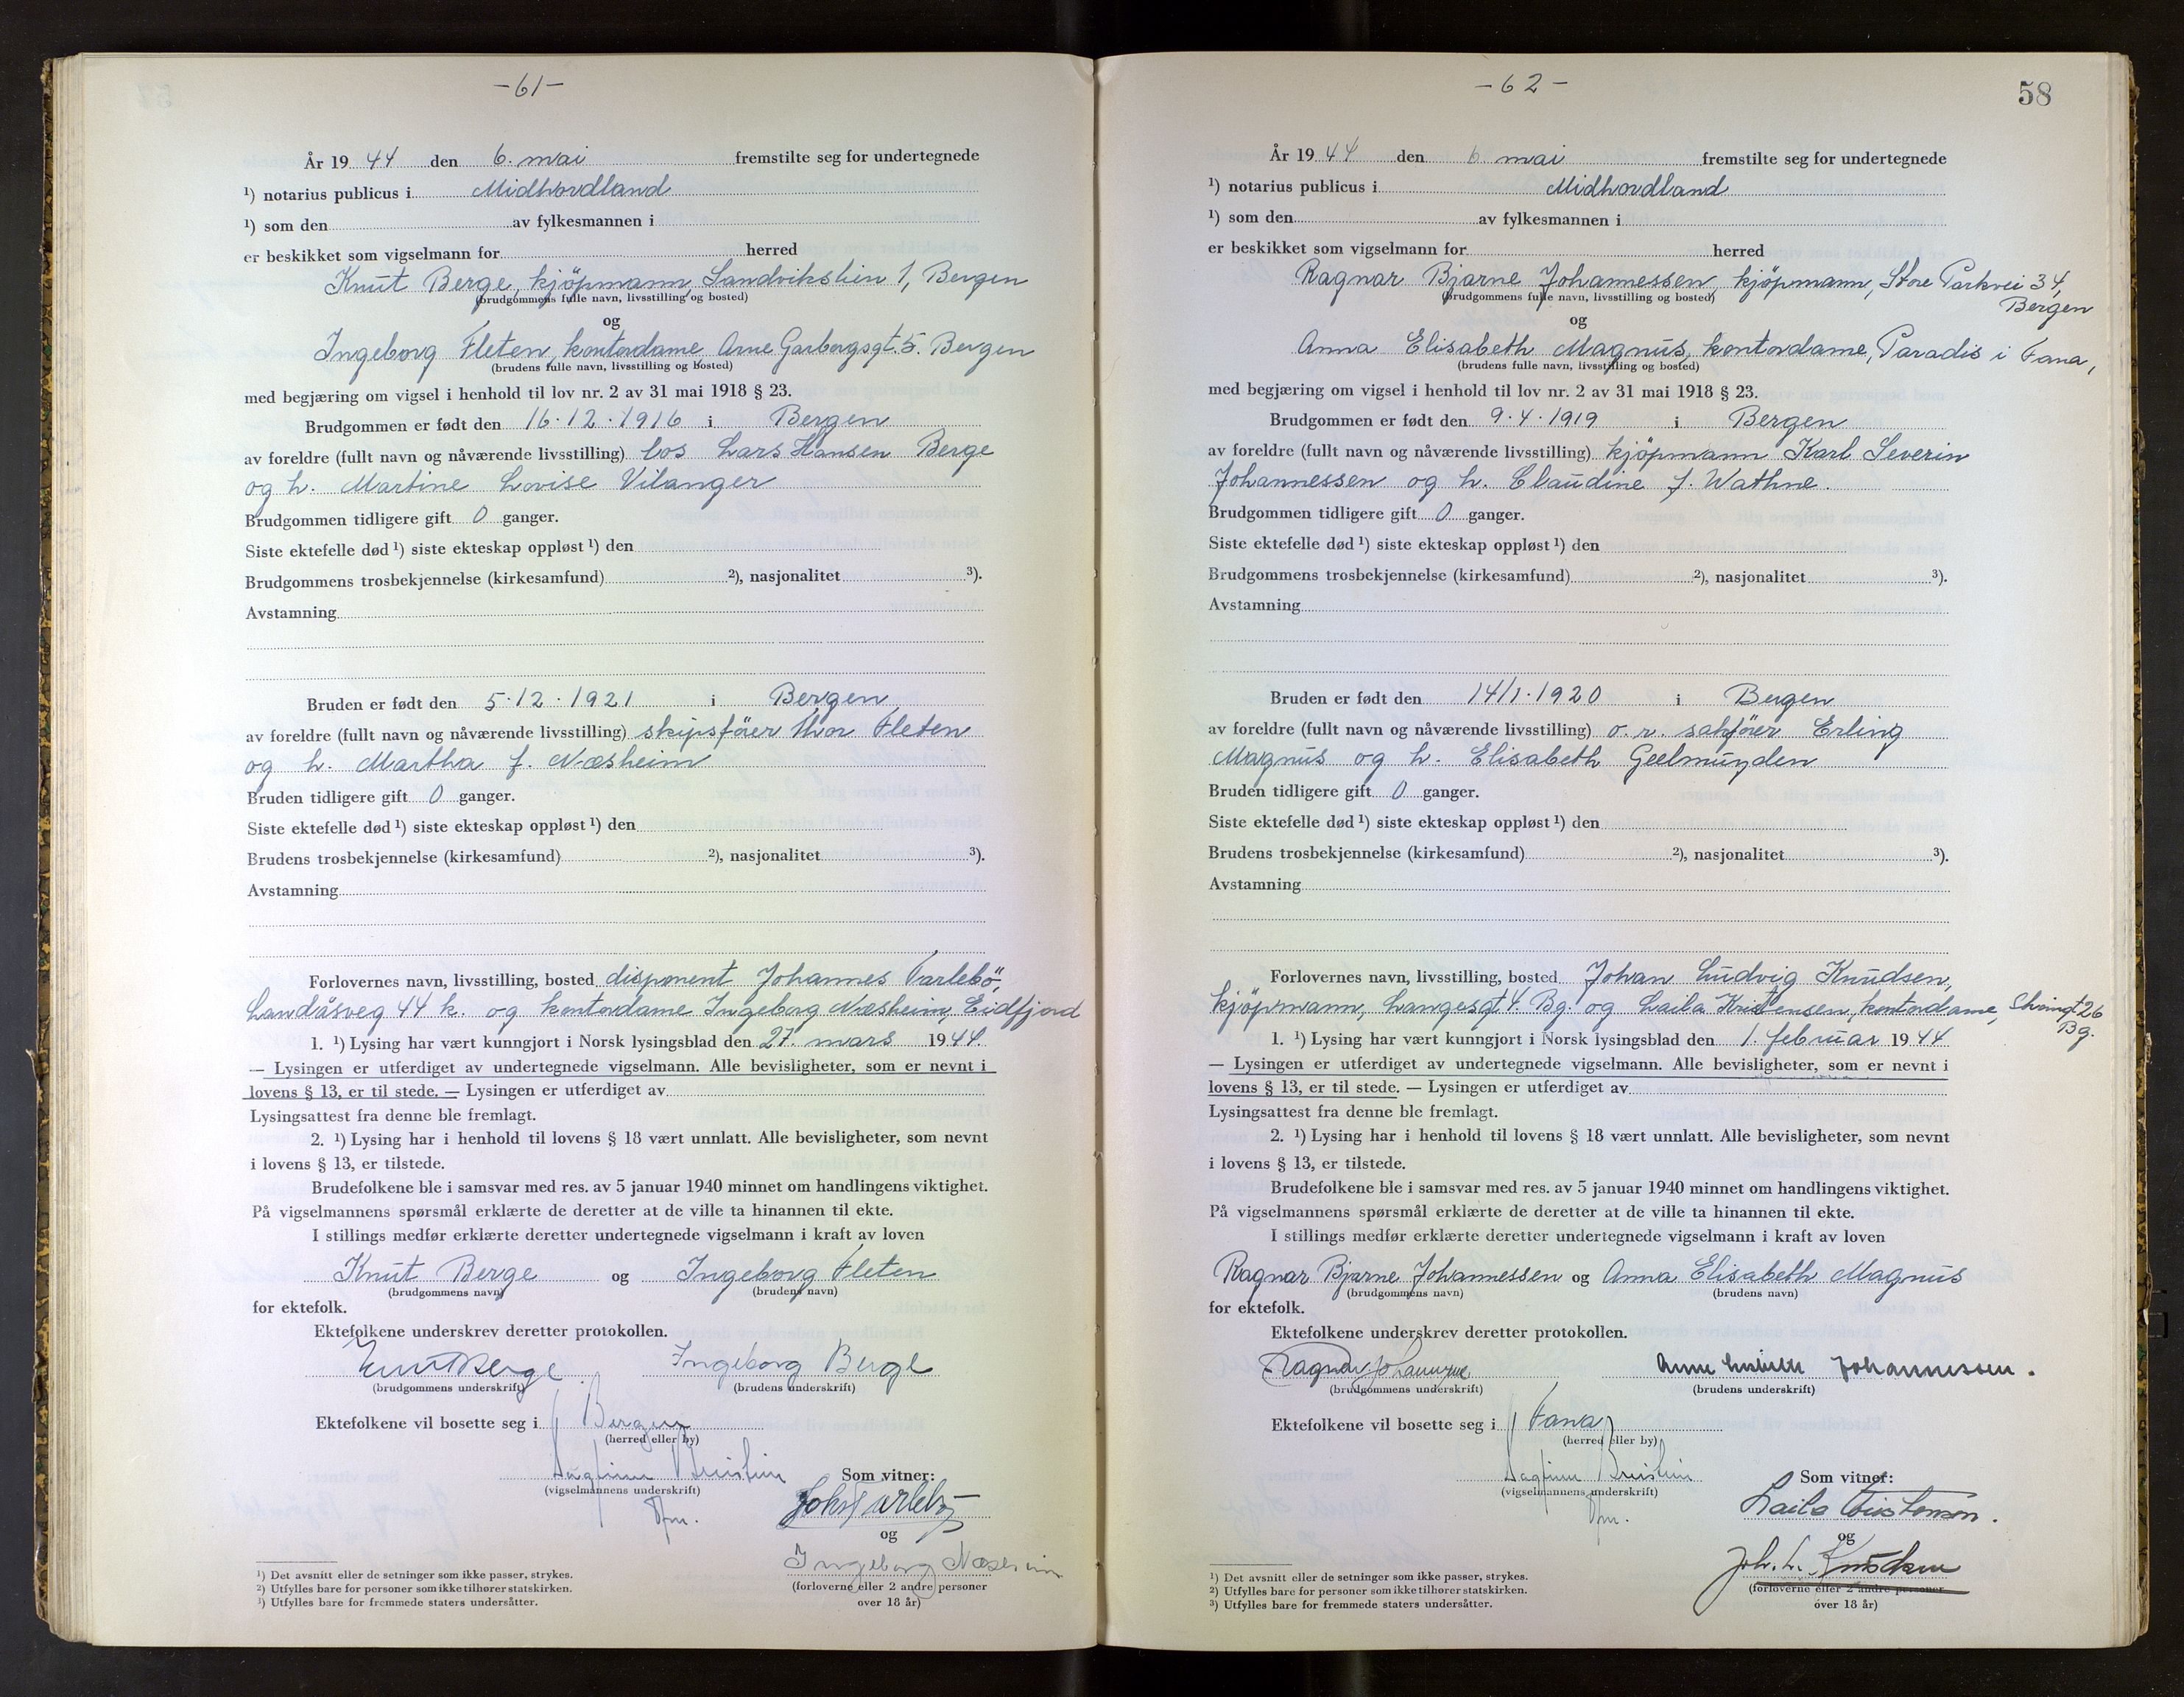 -61-
År 1944 den 6. mai fremstilte seg for undertegnede
¹) notarius publicus i Midhordland
¹) som den av fylkesmannen i
er beskikket som vigselmann for herred
Knut Berge, kjöpmann, Sandvikslien 1, Bergen
(brudgommens fulle navn, livsstilling og bosted)
og
Ingeborg Fleten, kontordame, Arne Garborgsgt. 5. Bergen
(brudens fulle navn, livsstilling og bosted)
med begjæring om vigsel i henhold til lov nr. 2 av 31 mai 1918 § 23.
Brudgommen er født den 16.12.1916 i Bergen
av foreldre (fullt navn og nåværende livsstilling) los Lars Hansen Berge
og h. Martine Lovise Vilanger
Brudgommen tidligere gift 0 ganger.
Siste ektefelle død ¹) siste ekteskap oppløst ¹) den
Brudgommens trosbekjennelse (kirkesamfund) ²), nasjonalitet ³).
Avstamning
Bruden er født den 5.12.1921 i Bergen
av foreldre (fullt navn og nåværende livsstilling) skipsförer Thor Fleten
og h. Martha f. Næsheim
Bruden tidligere gift 0 ganger.
Siste ektefelle død ¹) siste ekteskap oppløst ¹) den
Brudens trosbekjennelse (kirkesamfund) ²), nasjonalitet ³).
Avstamning
Forlovernes navn, livsstilling, bosted disponent Johannes Tarlebö,
Landåsveg 44 k. og kontordame Ingeborg Næsheim, Eidfjord
1. ¹) Lysing har vært kunngjort i Norsk lysingsblad den 27. mars 1944
— Lysingen er utferdiget av undertegnede vigselmann. Alle bevisligheter, som er nevnt i
lovens § 13, er til stede. — Lysingen er utferdiget av
Lysingsattest fra denne ble fremlagt.
2. ¹) Lysing har i henhold til lovens § 18 vært unnlatt. Alle bevisligheter, som nevnt
i lovens § 13, er tilstede.
Brudefolkene ble i samsvar med res. av 5 januar 1940 minnet om handlingens viktighet.
På vigselmannens spørsmål erklærte de deretter at de ville ta hinannen til ekte.
I stillings medfør erklærte deretter undertegnede vigselmann i kraft av loven
Knut Berge og Ingeborg Fleten
(brudgommens navn) (brudens navn)
for ektefolk.
Ektefolkene underskrev deretter protokollen.
Knut Berge Ingeborg Berge
(brudgommens underskrift) (brudens underskrift)
Ektefolkene vil bosette seg i Bergen
(herred eller by)
Dagfinn
Som vitner:
(vigselmannens underskrift)
Joh Tarlebø
og
Ingeborg Næsheim
(forloverne eller 2 andre personer
over 18 år)
¹) Det avsnitt eller de setninger som ikke passer, strykes.
²) Utfylles bare for personer som ikke tilhører statskirken.
³) Utfylles bare for fremmede staters undersåtter.
-62-
58
År 1944 den 6 mai fremstilte seg for undertegnede
¹) notarius publicus i Midhordland
¹) som den av fylkesmannen i
er beskikket som vigselmann for herred
Ragnar Bjarne Johannessen, kjöpmann, Store Parkvei 34,
Bergen
(brudgommens fulle navn, livsstilling og bosted)
og
Anna Elisabeth Magnus, kontordame, Paradis i Fana,
(brudens fulle navn, livsstilling og bosted)
med begjæring om vigsel i henhold til lov nr. 2 av 31 mai 1918 § 23.
Brudgommen er født den 9.4.1919 i Bergen
av foreldre (fullt navn og nåværende livsstilling) kjöpmann Karl Severin
Johannessen og h. Claudine f. Wathne.
Brudgommen tidligere gift 0 ganger.
Siste ektefelle død ¹) siste ekteskap oppløst ¹) den
Brudgommens trosbekjennelse (kirkesamfund) ²), nasjonalitet ³).
Avstamning
Bruden er født den 14/1.1920 i Bergen
av foreldre (fullt navn og nåværende livsstilling) o. r. sakförer Erling
Magnus og h. Elisabeth Geelmuyden
Bruden tidligere gift 0 ganger.
Siste ektefelle død ¹) siste ekteskap oppløst ¹) den
Brudens trosbekjennelse (kirkesamfund) ²), nasjonalitet ³).
Avstamning
Forlovernes navn, livsstilling, bosted Johan Ludvig Knudsen,
kjöpmann, Langesgt. 4. Bg. og Laila Kristensen, kontordame, 26
Bg.
1. ¹) Lysing har vært kunngjort i Norsk lysingsblad den 1. februar 1944
— Lysingen er utferdiget av undertegnede vigselmann. Alle bevisligheter, som er nevnt i
lovens § 13, er til stede. — Lysingen er utferdiget av
Lysingsattest fra denne ble fremlagt.
2. ¹) Lysing har i henhold til lovens § 18 vært unnlatt. Alle bevisligheter, som nevnt
i lovens § 13, er tilstede.
Brudefolkene ble i samsvar med res. av 5 januar 1940 minnet om handlingens viktighet.
På vigselmannens spørsmål erklærte de deretter at de ville ta hinannen til ekte.
I stillings medfør erklærte deretter undertegnede vigselmann i kraft av loven
Ragnar Bjarne Johannessen og Anna Elisabeth Magnus
(brudgommens navn) (brudens navn)
for ektefolk.
Ektefolkene underskrev deretter protokollen.
Ragnar Johannessen Anna Elisabeth Johannessen.
(brudgommens underskrift) (brudens underskrift)
Ektefolkene vil bosette seg i Fana
(herred eller by)
Dagfinn
Som vitner:
(vigselmannens underskrift)
Laila Kristensen.
og
Joh. L. Knudsen
(forloverne eller 2 andre personer
over 18 år)
¹) Det avsnitt eller de setninger som ikke passer, strykes.
²) Utfylles bare for personer som ikke tilhører statskirken.
³) Utfylles bare for fremmede staters undersåtter.